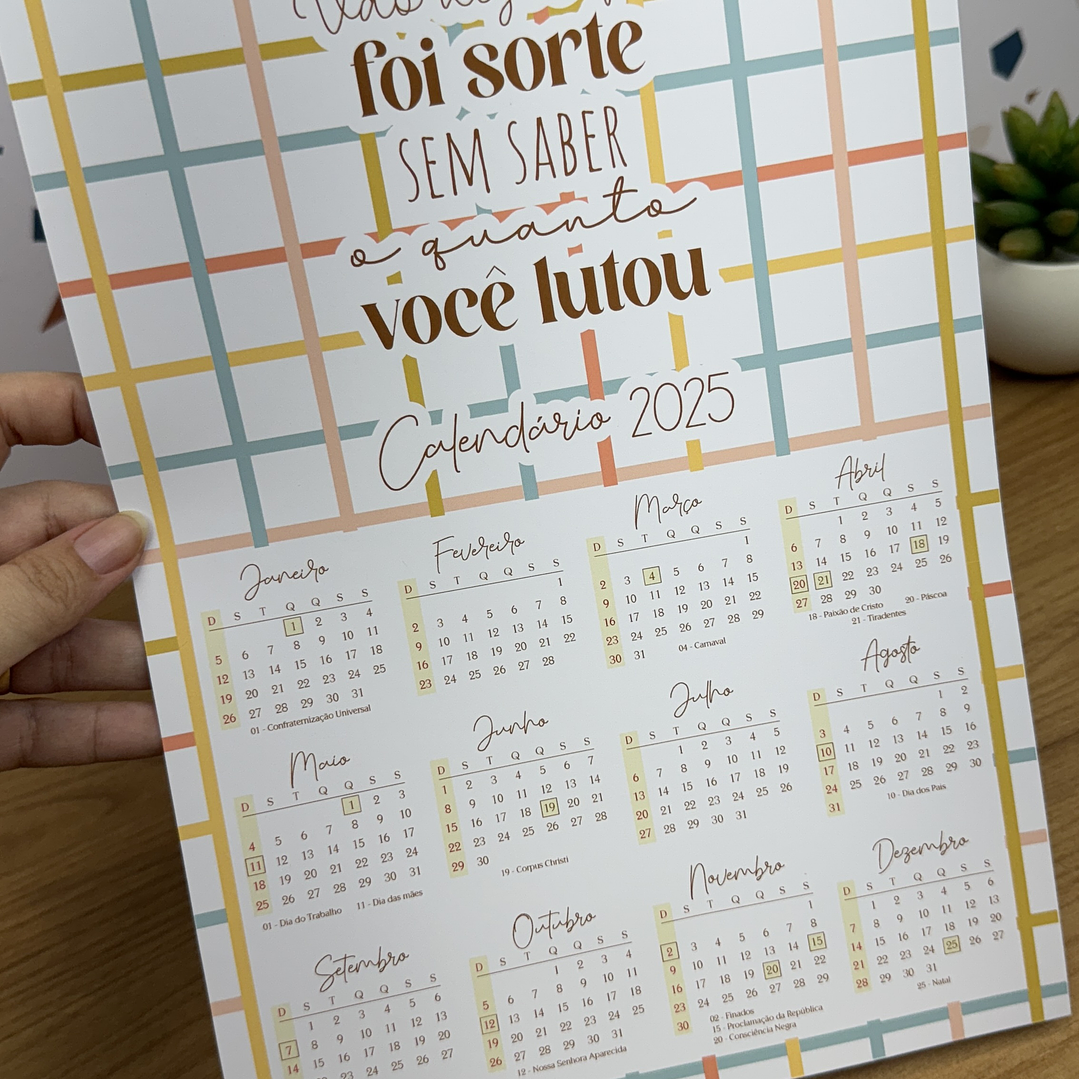 foi sorte
SEM SABER
o quanto
você lutou
Calendário 2025
Janeiro
D S T Q Q S S
1 2 3 4
5 6 7 8 9 10 11
12 13 14 15 16 17 18
19 20 21 22 23 24 25
26 27 28 29 30 31
01 - Confraternização Universal
Fevereiro
D S T Q Q S S
1
2 3 4 5 6 7 8
9 10 11 12 13 14 15
16 17 18 19 20 21 22
23 24 25 26 27 28
Março
D S T Q Q S S
1
2 3 4 5 6 7 8
9 10 11 12 13 14 15
16 17 18 19 20 21 22
23 24 25 26 27 28 29
30 31
04 - Carnaval
Abril
D S T Q Q S S
1 2 3 4 5
6 7 8 9 10 11 12
13 14 15 16 17 18 19
20 21 22 23 24 25 26
27 28 29 30
18 - Paixão de Cristo 20 - Páscoa
21 - Tiradentes
Maio
D S T Q Q S S
1 2 3
4 5 6 7 8 9 10
11 12 13 14 15 16 17
18 19 20 21 22 23 24
25 26 27 28 29 30 31
01 - Dia do Trabalho 11 - Dia das mães
Junho
D S T Q Q S S
1 2 3 4 5 6 7
8 9 10 11 12 13 14
15 16 17 18 19 20 21
22 23 24 25 26 27 28
29 30
19 - Corpus Christi
Julho
D S T Q Q S S
1 2 3 4 5
6 7 8 9 10 11 12
13 14 15 16 17 18 19
20 21 22 23 24 25 26
27 28 29 30 31
Agosto
D S T Q Q S S
1 2
3 4 5 6 7 8 9
10 11 12 13 14 15 16
17 18 19 20 21 22 23
24 25 26 27 28 29 30
31
10 - Dia dos Pais
Setembro
D S T Q Q S S
1 2 3 4 5 6
7 8 9 10 11 12 13
14 15 16 17 18 19 20
23 24 25 26 27
Outubro
D S T Q Q S S
1 2 3 4
5 6 7 8 9 10 11
12 13 14 15 16 17 18
19 20 21 22 23 24 25
26 27 28 29 30 31
12 - Nossa Senhora Aparecida
Novembro
D S T Q Q S S
1
2 3 4 5 6 7 8
9 10 11 12 13 14 15
16 17 18 19 20 21 22
23 24 25 26 27 28 29
30
02 - Finados
15 - Proclamação da República
20 - Consciência Negra
Dezembro
D S T Q Q S S
1 2 3 4 5 6
7 8 9 10 11 12 13
14 15 16 17 18 19 20
21 22 23 24 25 26 27
28 29 30 31
25 - Natal